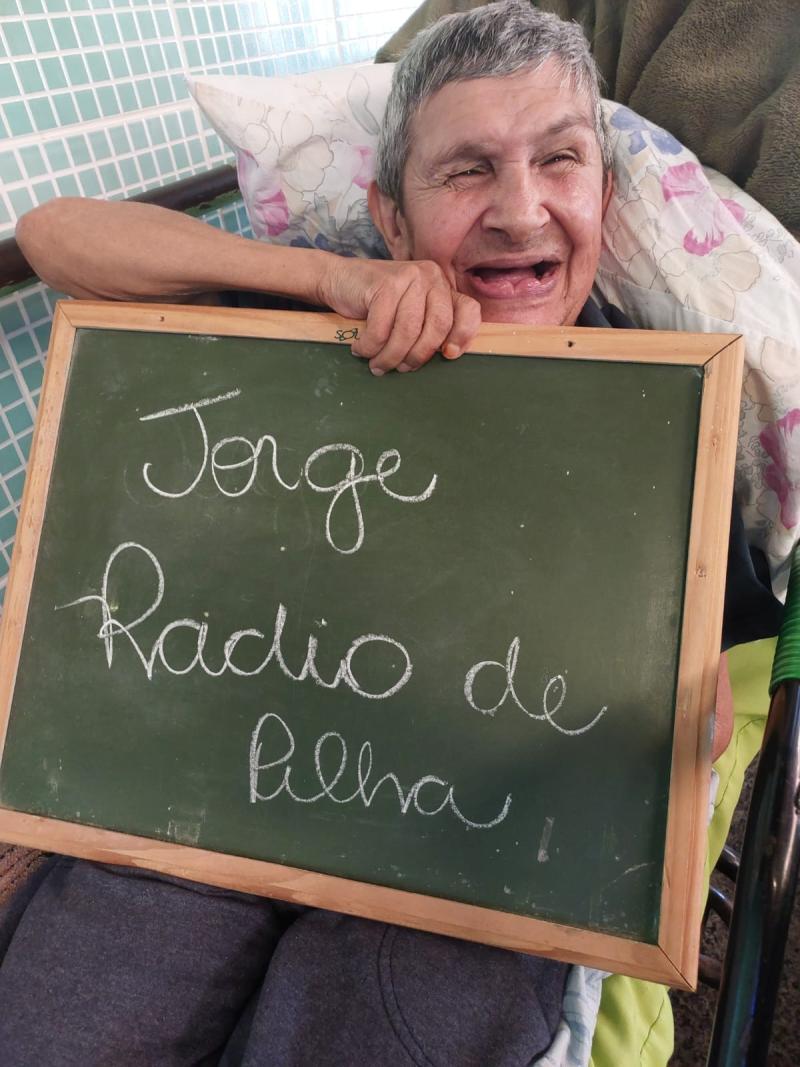 Jorge
Radio de
Pilha